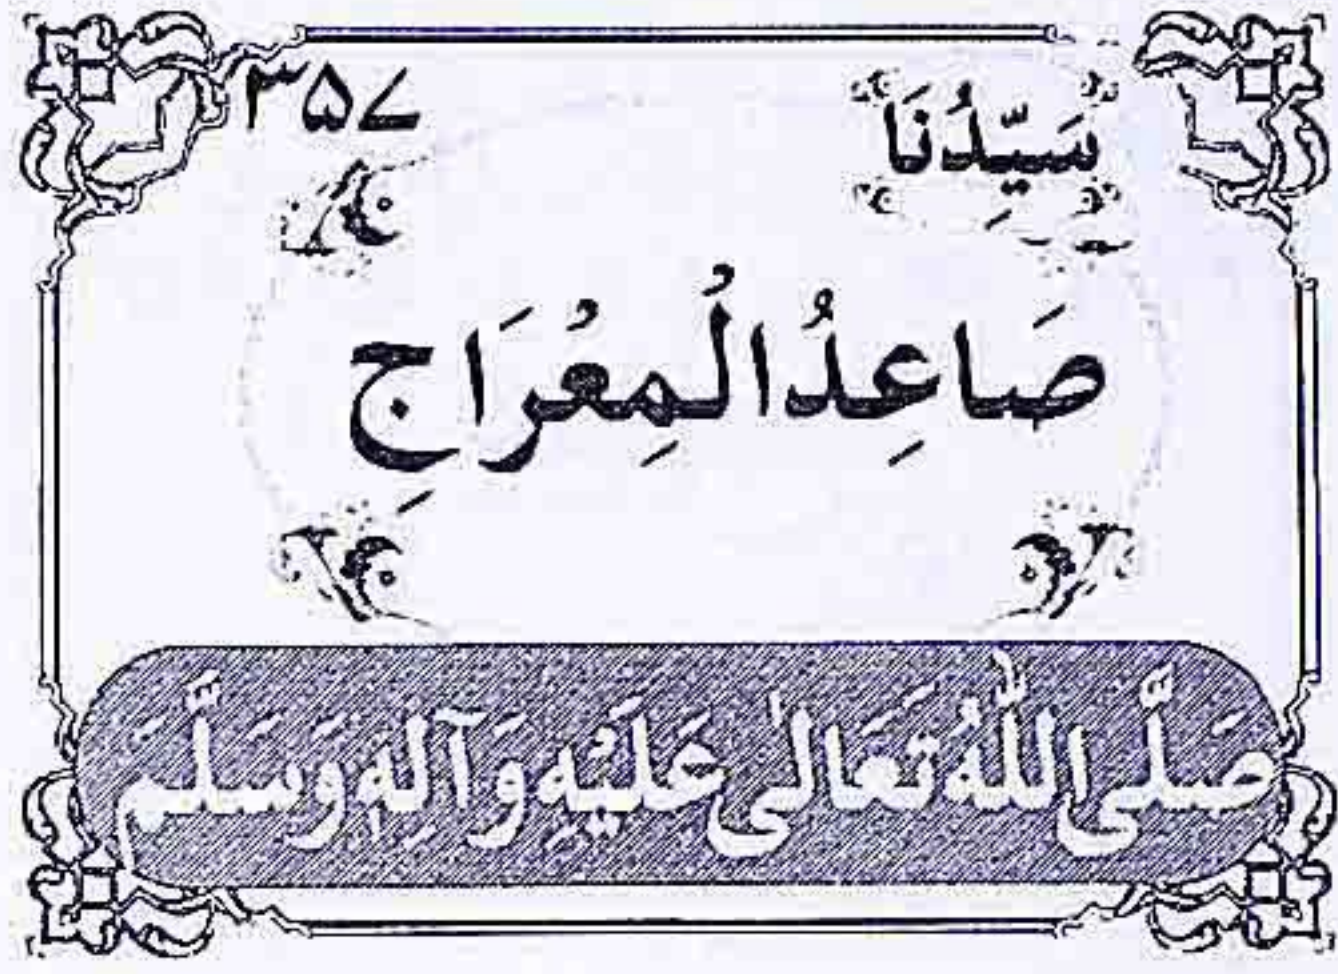 سَيِّدُنَا
۳۵۷
صَاعِدُ الْمِعْرَاجِ
صَلَّى اللّٰهُ تَعَالٰى عَلَيْهِ وَآلِهٖ وَسَلَّمَ